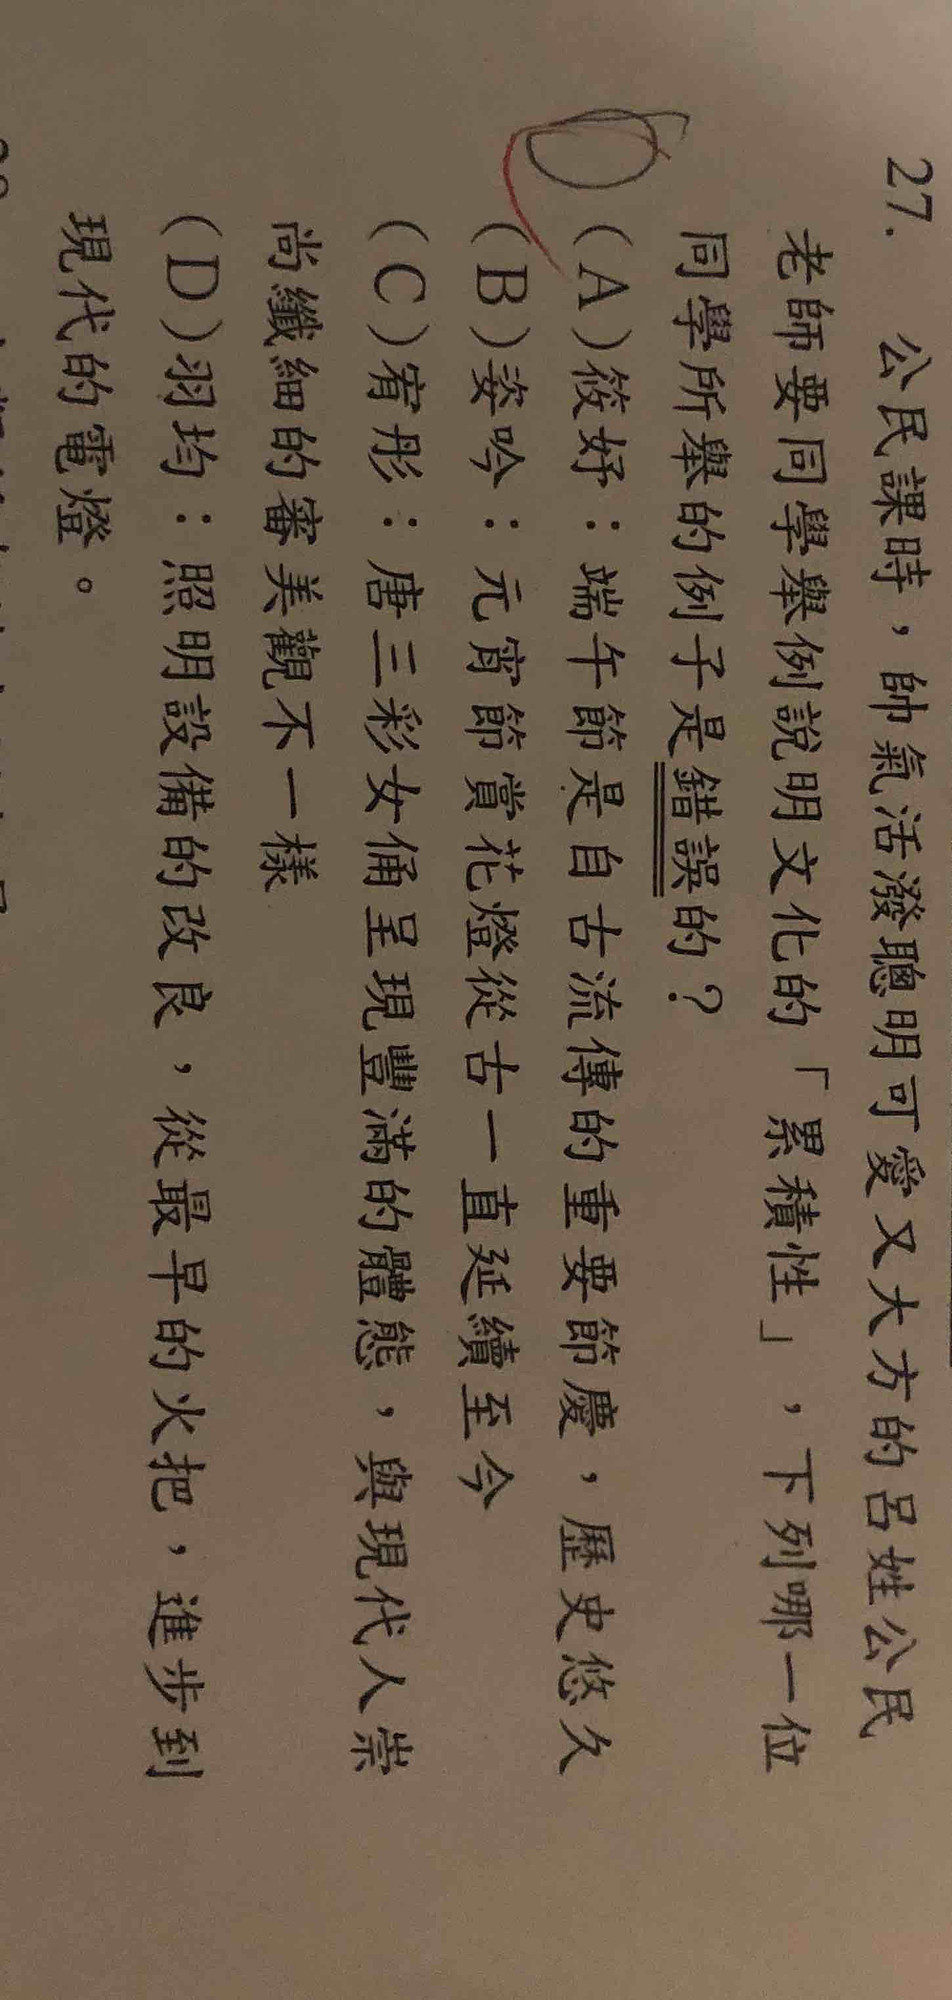 27. 公民課時，帥氣活潑聰明可愛又大方的呂姓公民
老師要同學舉例說明文化的「累積性」，下列哪一位
同學所舉的例子是錯誤的？
(A)筱妤：端午節是自古流傳的重要節慶，歷史悠久
(B)姿吟：元宵節賞花燈從古一直延續至今
(C)宥彤：唐三彩女俑呈現豐滿的體態，與現代人崇
尚纖細的審美觀不一樣
(D)羽均：照明設備的改良，從最早的火把，進步到
現代的電燈。